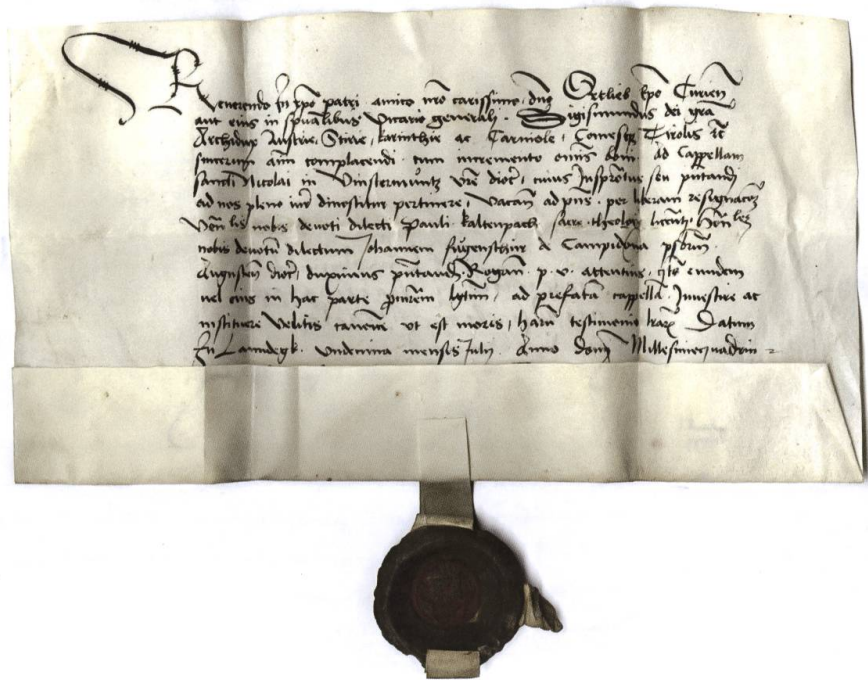 Reverendo In xpo patri amico nro carissimo dno Ortlieb Epo Curien
aut eius in spualibus Vicario generali Sigismundus dei gra
Archidux Austrie, Stirie, karinthie ac Carniole, Comesq Tirolis etc
sincerum complacendi cum incremento omnis boni ad Cappellam
sancti Nicolai in Vinstermuntz vre dioc, cuius Inspectus seu putandi
ad nos pleno iure dinoscitur pertinere, Vacan ad pns per liberam resignacoem
nobis devoti dilecti Pauli kaltenpach sacre theologie licenti
nobis devotu dilectum Johannem fugenschur de Campidona psbrm
Augusten dioc, duximus putand, Rogan p v attentius, eundem
vel eius in hac parte ad prefata cappella Investire ac
instituere Velitis canonice ut est moris, haru testimonio lraru Datum
In Lanndegk undecima mensis Julij Anno domi Millesimoquadrin